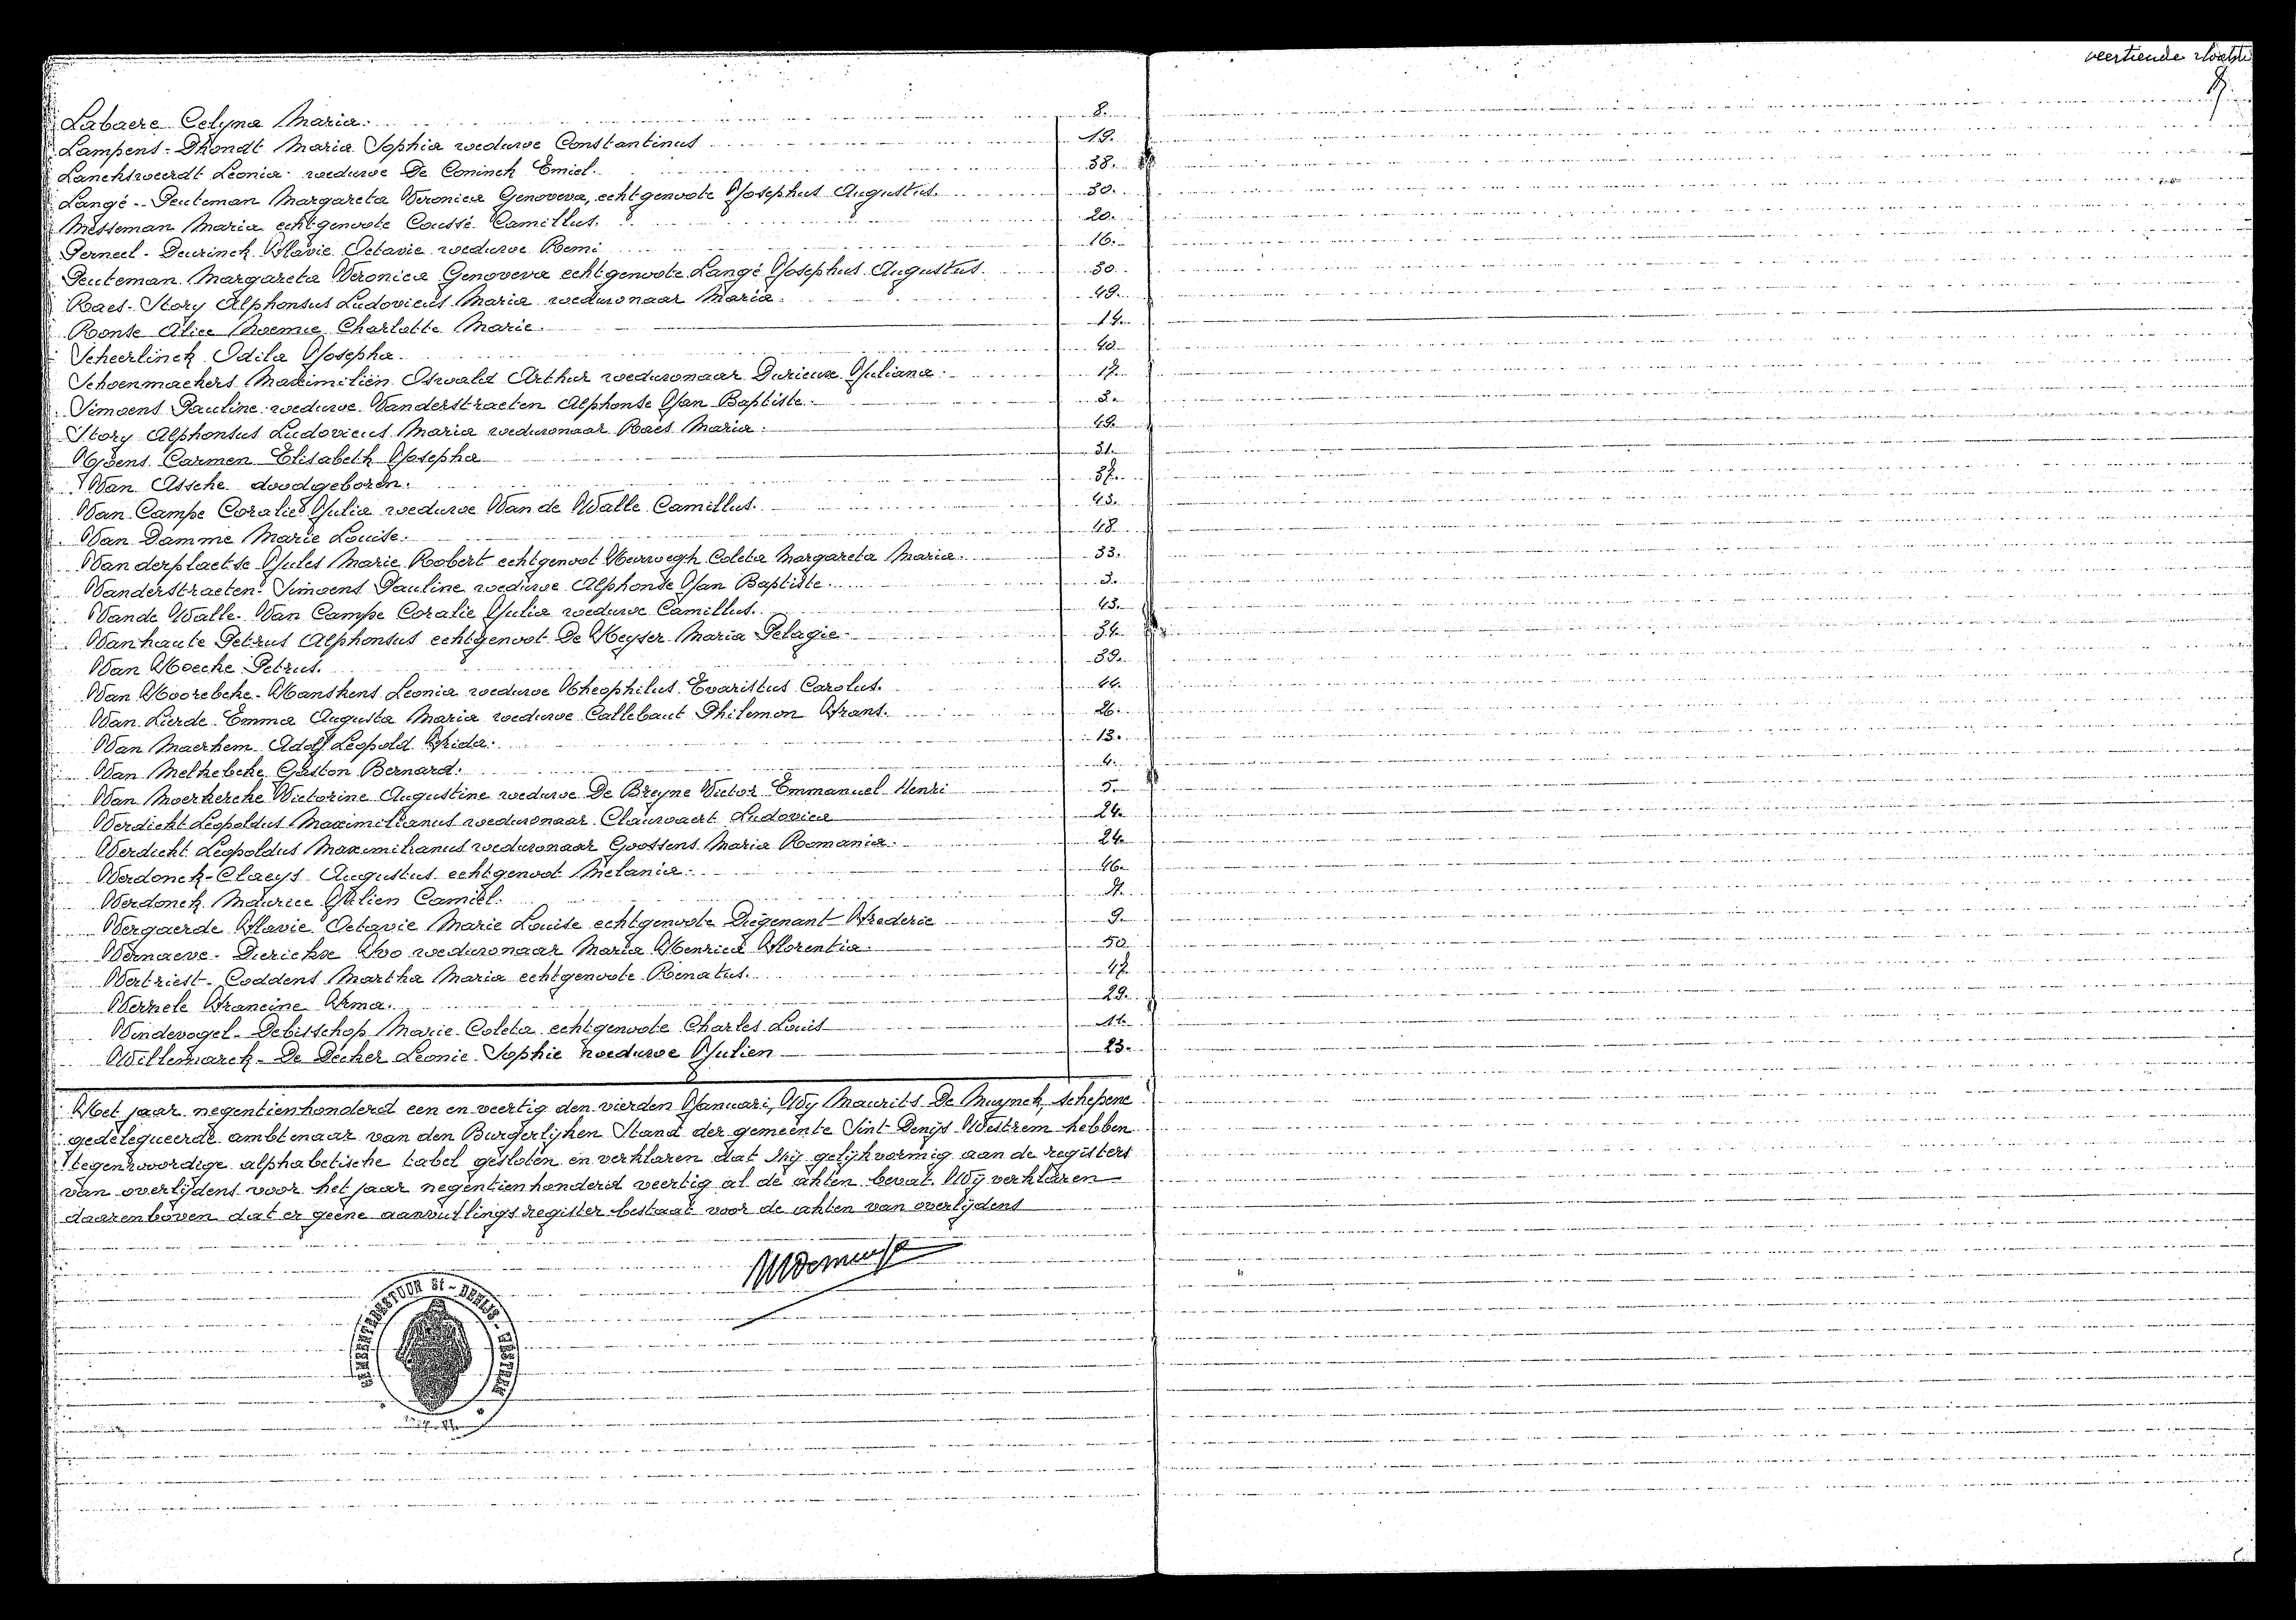 veertiende & laatste
Labaere Celyna Maria. 8.
Lampens - Dhondt Maria Sophia weduwe Constantinus 19.
Lancksweerdt Leonia weduwe De Coninck Emiel. 38.
Langé - Peuteman Margareta Veronica Genoveva, echtgenoote Josephus Augustus. 30.
Messeman Maria echtgenoote Coussé Camillus. 20.
Perneel - Deurinck Flavie Octavie weduwe Remi 16.
Peuteman Margareta Veronica Genoveva echtgenoote Langé Josephus Augustus. 30.
Raes - Story Alphonsus Ludovicus Maria weduwnaar Maria. 49.
Ronse Alice Noemie Charlotte Marie. 14.
Scheerlinck Odila Josepha. 40.
Schoenmaekers Maximilien Oswald Arthur weduwnaar Durieux Juliana. 17.
Simoens Pauline weduwe Vanderstraeten Alphonse Jan Baptiste. 3.
Story Alphonsus Ludovicus Maria weduwnaar Raes Maria. 49.
Tjoens Carmen Elisabeth Josepha 31.
Van Assche doodgeboren. 37.
Van Campe Coralie Julia weduwe Van de Walle Camillus. 43.
Van Damme Marie Louise. 48.
Vanderplaetse Jules Marie Robert echtgenoot Herwegh Coleta Margareta Maria. 33.
Vanderstraeten - Simoens Pauline weduwe Alphonse Jan Baptiste. 3.
Vande Walle - Van Campe Coralie Julia weduwe Camillus. 43.
Vanhaute Petrus Alphonsus echtgenoot De Keyser Maria Pelagie. 34.
Van Hoecke Petrus. 39.
Van Hoorebeke - Hanskens Leonia weduwe Theophilus Evaristus Carolus. 44.
Van Lierde Emma Augusta Maria weduwe Callebaut Philemon Frans. 26.
Van Maerhem Adolf Leopold Frida. 13.
Van Melkebeke Gaston Bernard. 4.
Van Moerkercke Victorine Augustine weduwe De Breyne Victor Emmanuel Henri 5.
Verdickt Leopoldus Maximilianus weduwnaar Clauwaert Ludovica 24.
Verdickt Leopoldus Maximilianus weduwnaar Goossens Maria Romania. 24.
Verdonck - Claeys Augustus echtgenoot Melania. 46.
Verdonck Maurice Julien Camiel.
Vergaerde Flavie Octavie Marie Louise echtgenoote Diegenant Frederic 9.
Vernaeve - Dierickx Ivo weduwnaar Maria Henrica Florentia. 50
Vertriest - Coddens Martha Maria echtgenoote Renatus. 47
Vernele Francine Irma. 29.
Vindevogel - Debisschop Marie Coleta echtgenoote Charles Louis 11.
Willemarck - De Decker Leonie Sophie weduwe Julien 23.
Het jaar negentienhonderd een en veertig den vierden Januari, Wij Maurits De Muynck, schepene
gedelegueerde ambtenaar van den Burgerlijken Stand der gemeente Sint Denijs Westrem hebben
tegenwoordige alphabetische tabel gesloten en verklaren dat zij gelijkvormig aan de registers
van overlijdens voor het jaar negentienhonderd veertig al de akten bevat. Wij verklaren
daarenboven dat er geene aanvullingsregister bestaat voor de akten van overlijdens
GEMEENTEBESTUUR St-DENIJS-WESTREM